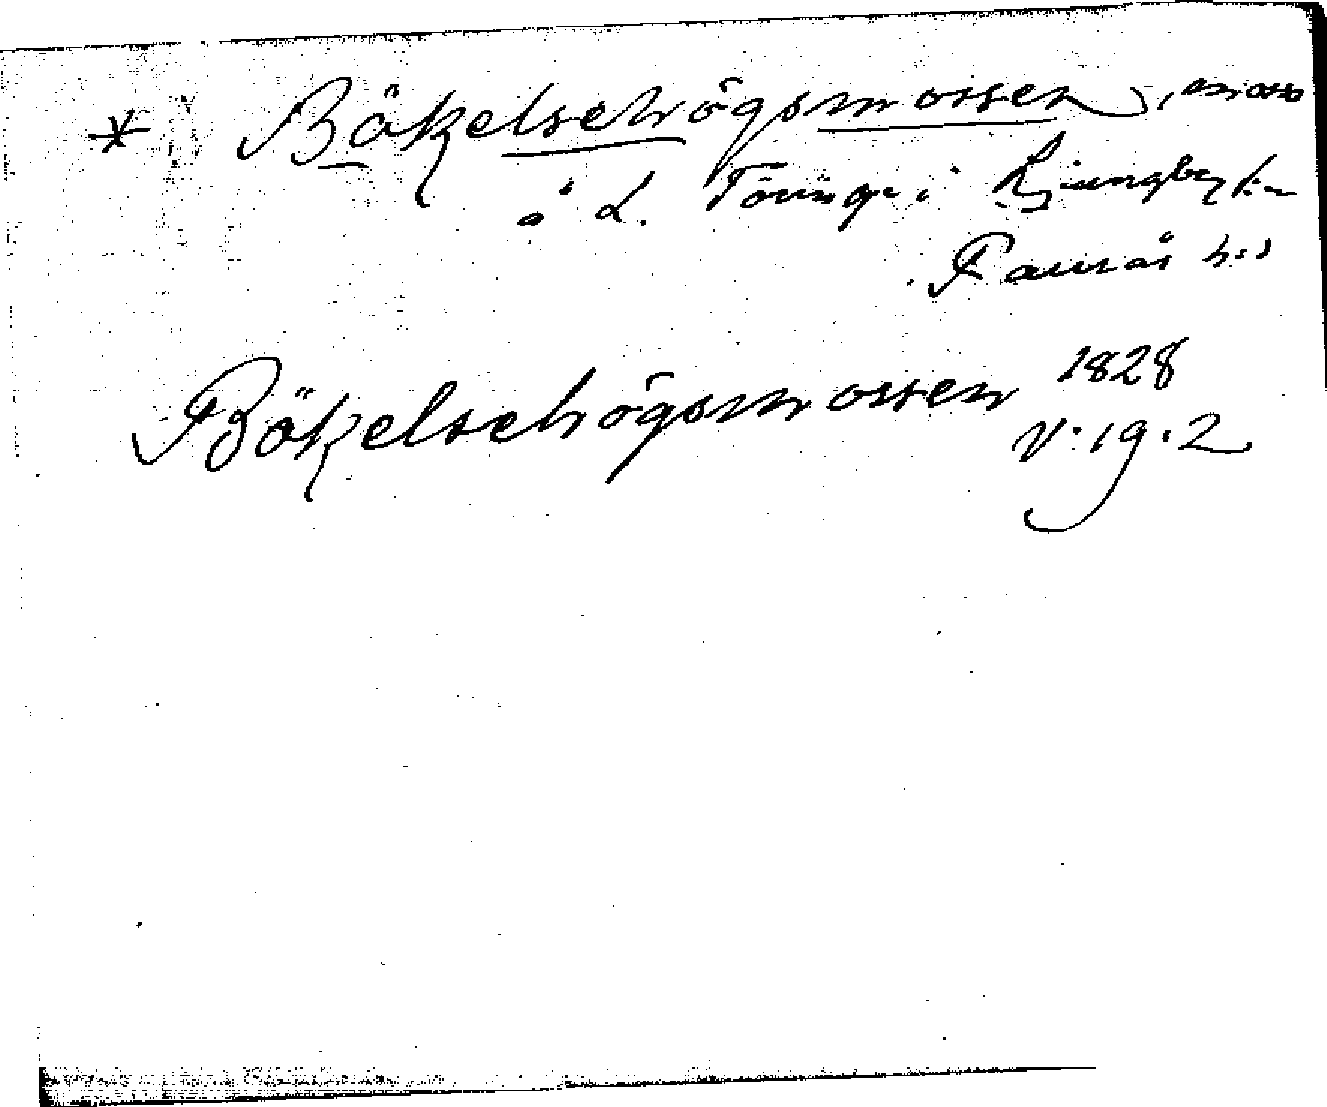 * Bökelsehögsmossen, mosse
å L. Töringe i Ljungby sn
Faurås hd
Bökelsehögsmossen 1828
V:19.2